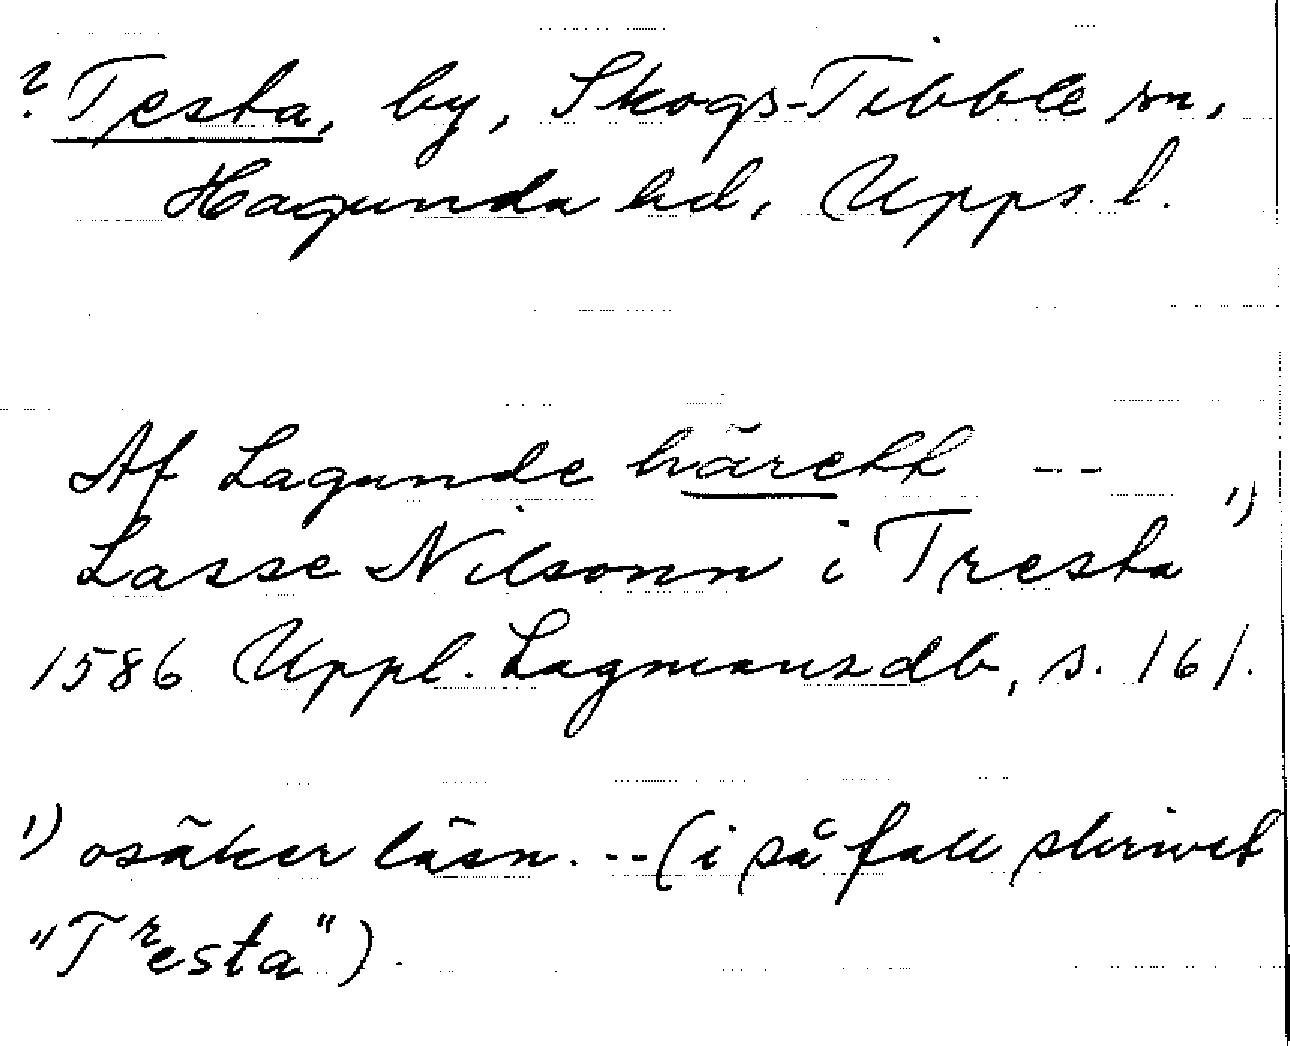 ? Testa, by, Skogs-Tibble sn,
Hagunda hd, Upps. l.
Af Lagunde härett --
Lasse Nilsonn i Tresta 1)
1586 Uppl. Lagmansdb, s. 161.
1) osäker läsn. -- (i så fall skrivet
"Tresta").